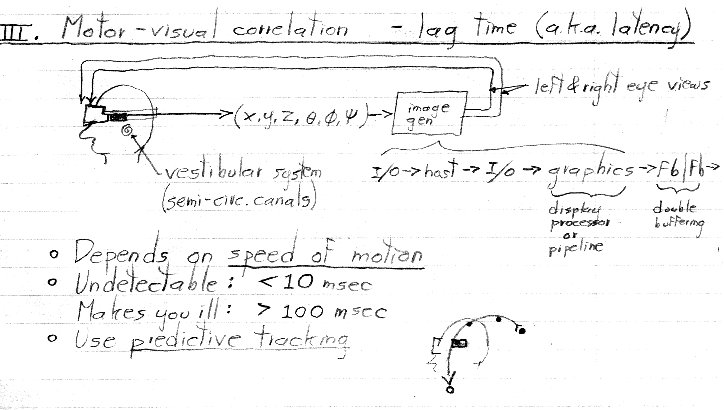 III. Motor-visual correlation - lag time (a.k.a. latency)
left & right eye views
(x, y, z, θ, φ, ψ) → image gen
vestibular system
(semi-circ. canals)
I/O → host → I/O → graphics → Fb|Fb →
display processor or pipeline
double buffering
○ Depends on speed of motion
○ Undetectable: < 10 msec
Makes you ill: > 100 msec
○ Use predictive tracking